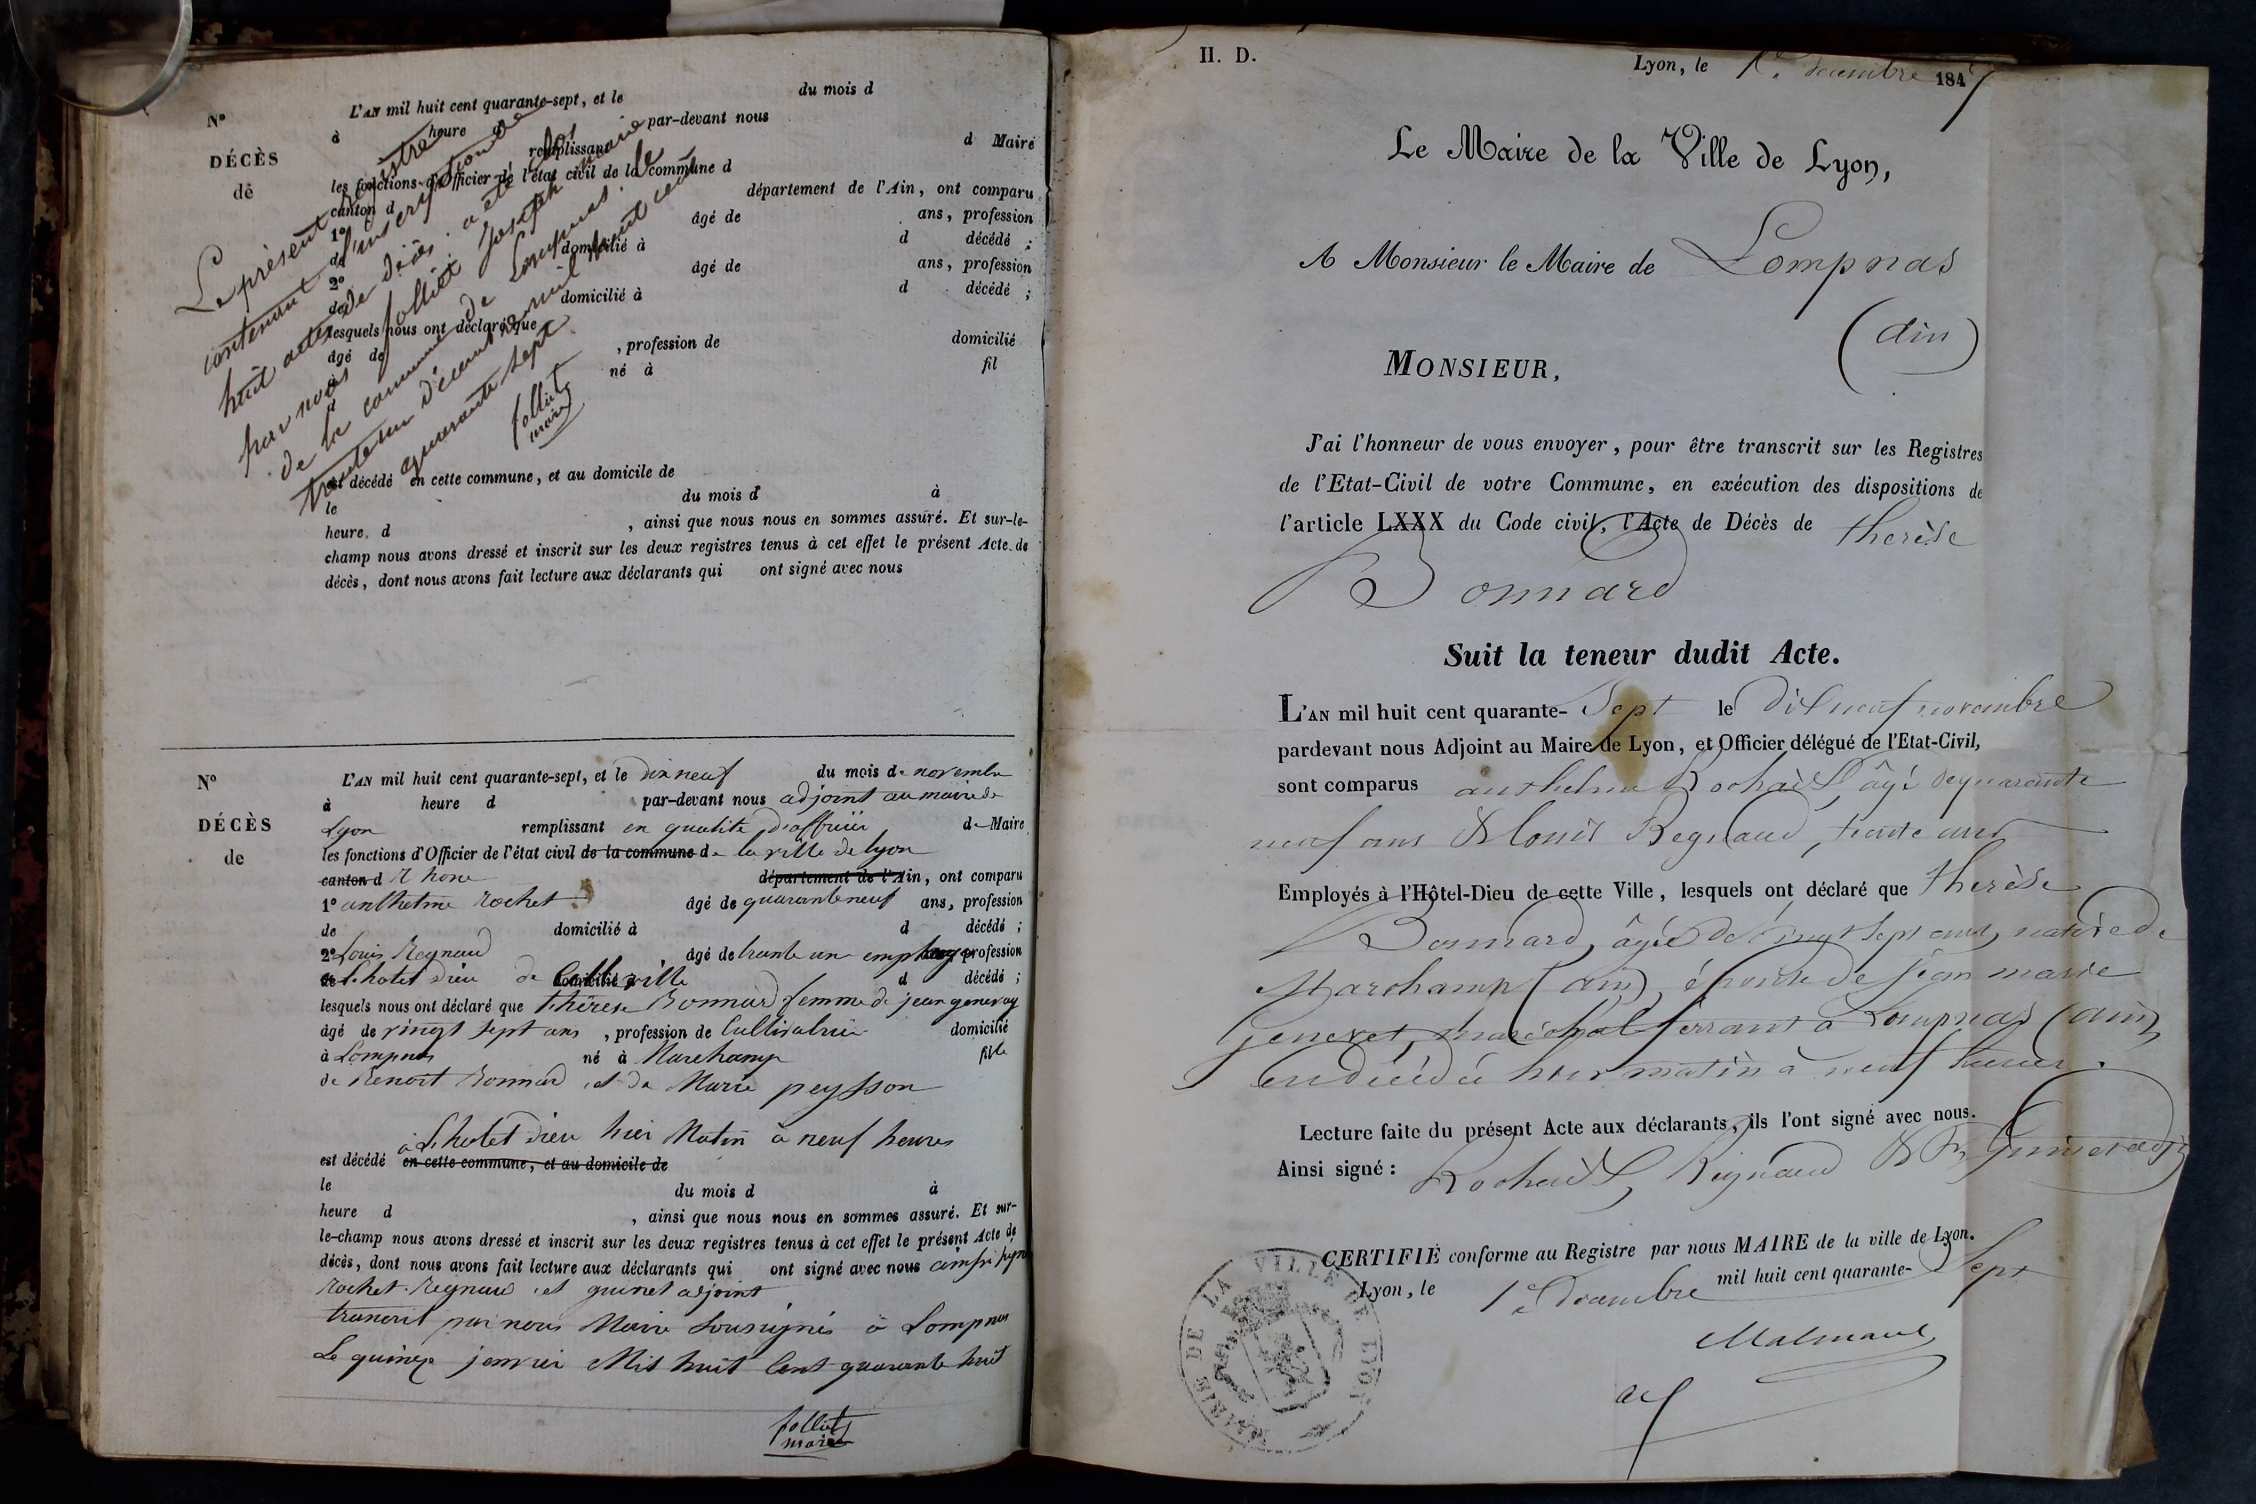 N°
DÉCÈS
de
L'AN mil huit cent quarante-sept, et le du mois d
à heure d par-devant nous
remplissant d Maire
les fonctions d'Officier de l'état civil de la commune d
canton d département de l'Ain, ont comparu
1° âgé de ans, profession
de domicilié à d décédé ;
2° âgé de ans, profession
de domicilié à d décédé ;
lesquels nous ont déclaré que
âgé de , profession de domicilié
à né à fil
est décédé en cette commune, et au domicile de
le du mois d à
heure d , ainsi que nous nous en sommes assuré. Et sur-le-
champ nous avons dressé et inscrit sur les deux registres tenus à cet effet le présent Acte de
décès, dont nous avons fait lecture aux déclarants qui ont signé avec nous
Le présent registre
contenant l'inscription de
huit actes de décès a été clos
par nous folliet joseph maire
de la commune de Lompnas le
trente un décembre mil huit cent
quarante sept
folliet
maire
N°
DÉCÈS
de
L'AN mil huit cent quarante-sept, et le dix neuf du mois de novembre
à heure d par-devant nous adjoint au maire de
Lyon remplissant en qualité d'officier de Maire
les fonctions d'Officier de l'état civil de la commune de la ville de lyon
canton d Rhone département de l'Ain, ont comparu
1° anthelme Rochet âgé de quarante neuf ans, profession
de domicilié à d décédé ;
2° Louis Regnaud âgé de trente un employé profession
de L'hotel Dieu de domicilié à Cette ville d décédé ;
lesquels nous ont déclaré que thérèse Bonnard femme de jean genevay
âgé de vingt sept ans , profession de Cultivatrice domicilié
à Lompnas né à Marchamp fille
de Benoit Bonnard et de Marie peysson
à L'hotel Dieu hier Matin à neuf heures
est décédé en cette commune, et au domicile de
le du mois d à
heure d , ainsi que nous nous en sommes assuré. Et sur-
le-champ nous avons dressé et inscrit sur les deux registres tenus à cet effet le présent Acte de
décès, dont nous avons fait lecture aux déclarants qui ont signé avec nous ainsi signé
Rochet Regnaud et guinet adjoint
transcrit par nous Maire Sousignés à Lompnas
Le quinze janvier Mil huit Cent quarante huit
folliet
maire
H. D.
Lyon, le 1er décembre 1847
Le Maire de la Ville de Lyon,
A Monsieur le Maire de Lompnas
(ain)
MONSIEUR,
J'ai l'honneur de vous envoyer, pour être transcrit sur les Registres
de l'Etat-Civil de votre Commune, en exécution des dispositions de
l'article LXXX du Code civil, l'Acte de Décès de therèse
Bonnard
Suit la teneur dudit Acte.
L'AN mil huit cent quarante- Sept le Dix neuf novembre
pardevant nous Adjoint au Maire de Lyon, et Officier délégué de l'Etat-Civil,
sont comparus anthelme Rochet, âgé de quarante
neuf ans & louis Regnaud, trente un
Employés à l'Hôtel-Dieu de cette Ville, lesquels ont déclaré que therèse
Bonnard, âgée de vingt sept ans, native de
Marchamp (ain), épouse de jean marie
Genevet, maréchal ferrant à Lompnas (ain)
est décédée hier matin à neuf heures.
Lecture faite du présent Acte aux déclarants, ils l'ont signé avec nous.
Ainsi signé : Rochet, Regnaud & Guinet adj
CERTIFIÉ conforme au Registre par nous MAIRE de la ville de Lyon.
Lyon, le 1er Décembre mil huit cent quarante- Sept
MAIRIE DE LA VILLE DE LYON